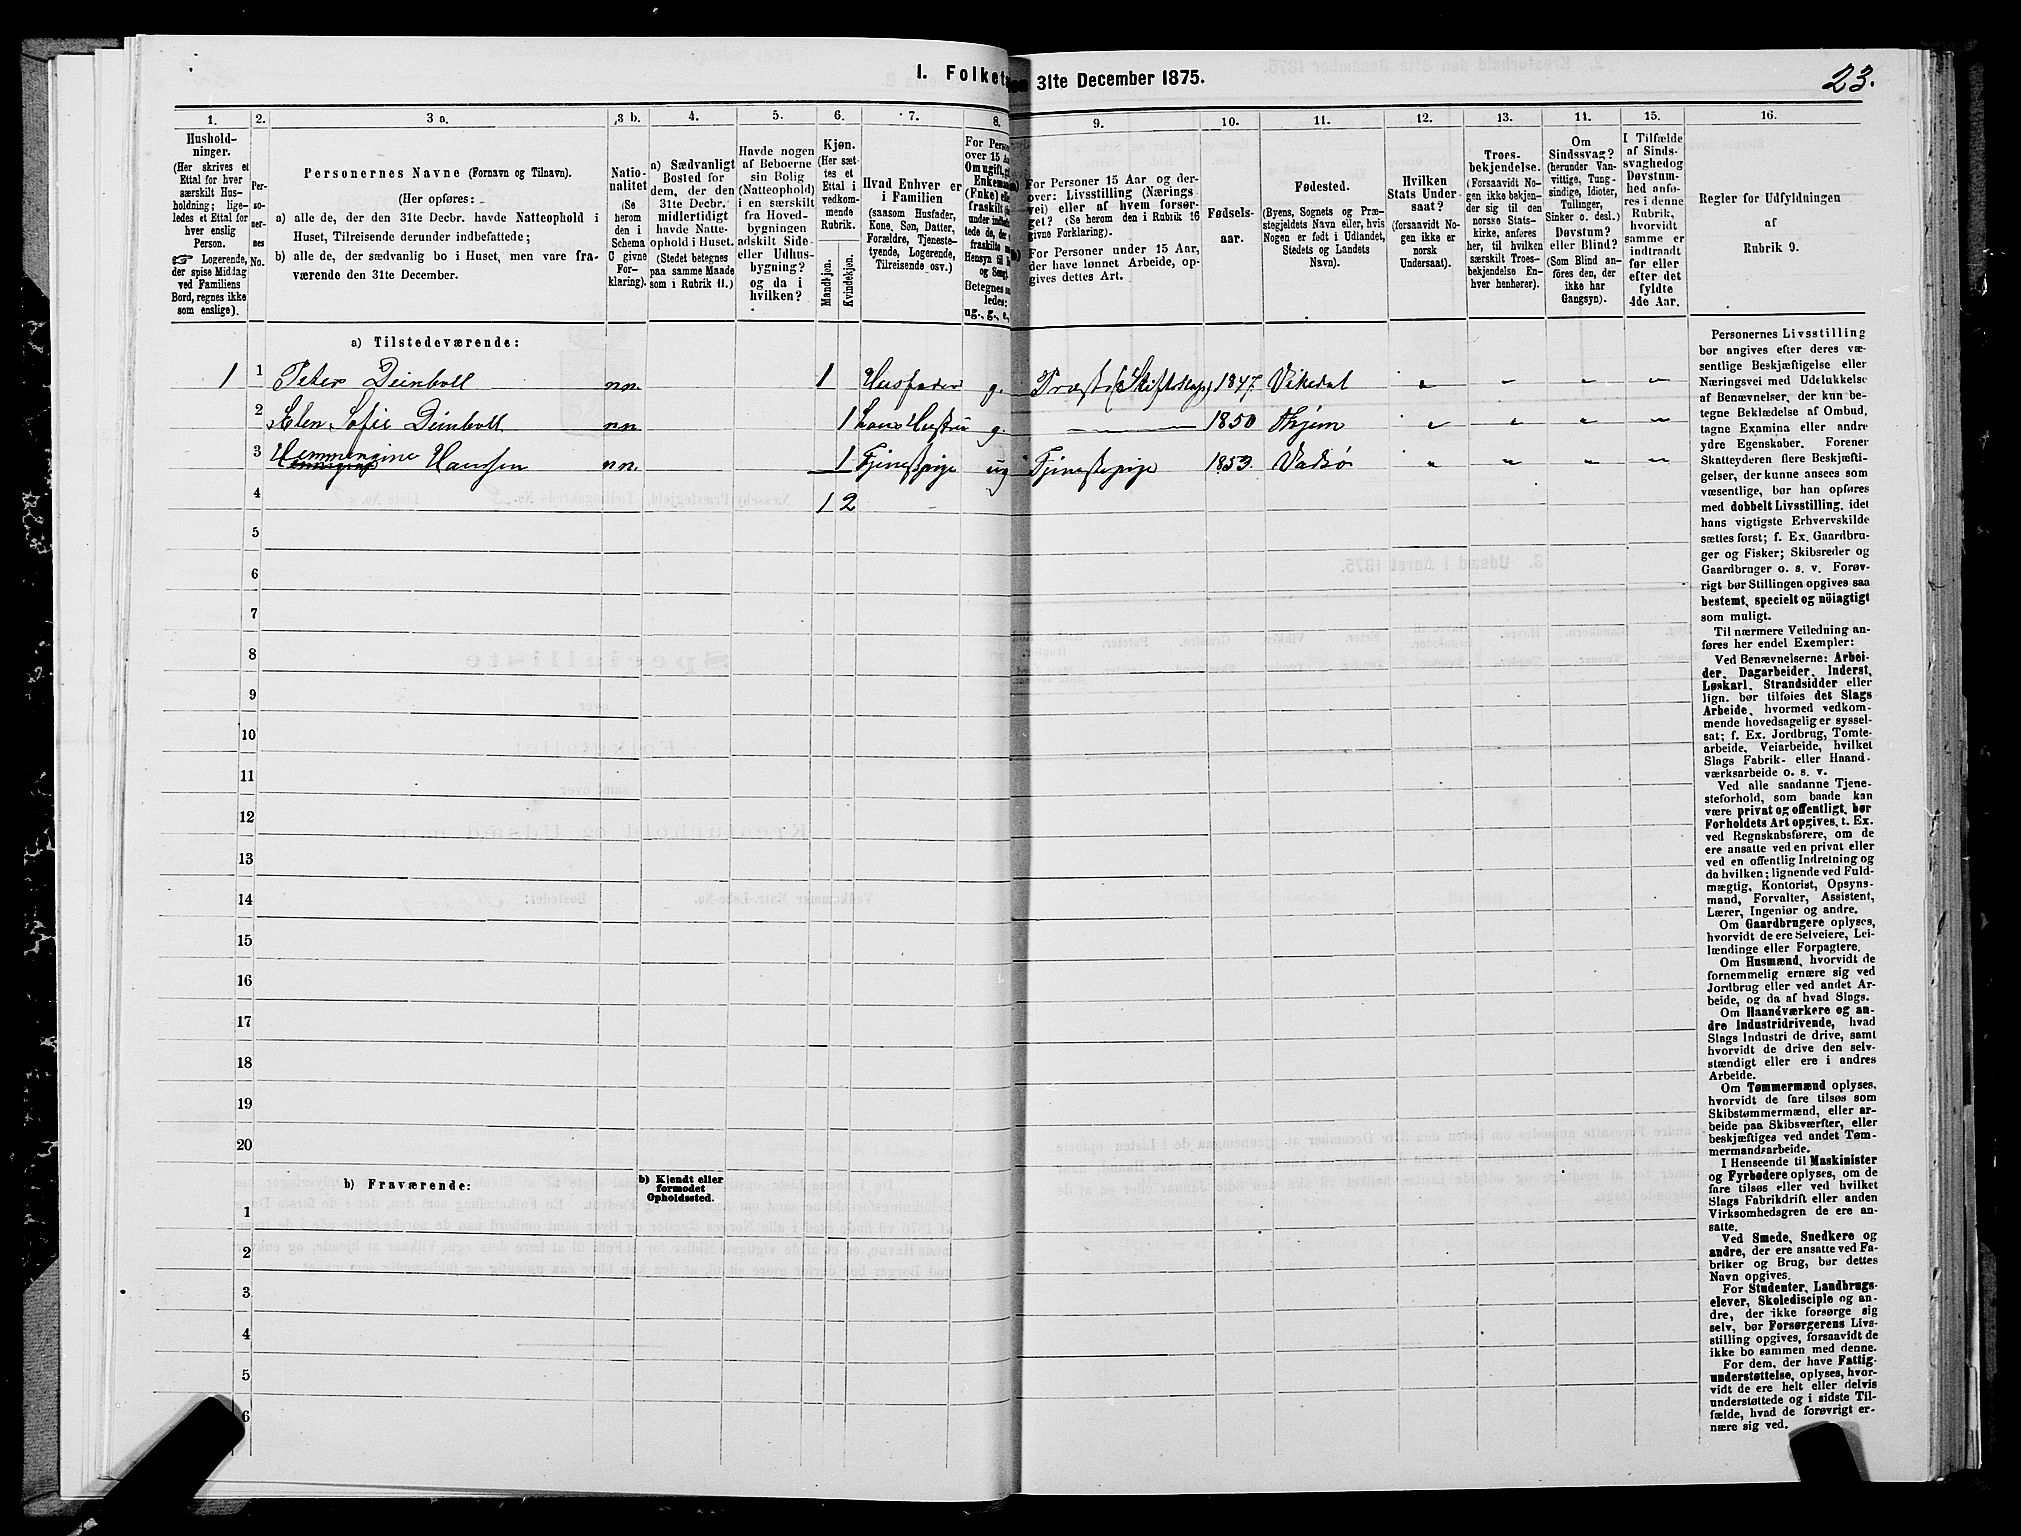 I. Folket
31te December 1875.
23.
1.
Hushold-
ninger.
(Her skrives et
Ettal for hver
særskilt Hus-
holdning; lige-
ledes et Ettal for
hver enslig
Person.
Logerende,
der spise Middag
ved Familiens
Bord, regnes ikke
som enslige).
2.
Per-
so-
ner-
nes
No.
3 a.
Personernes Navne (Fornavn og Tilnavn).
(Her opføres:
a) alle de, der den 31te Decbr. havde Natteophold i
Huset, Tilreisende derunder indbefattede;
b) alle de, der sædvanlig bo i Huset, men vare fra-
værende den 31te December.
3 b.
Natio-
nalitet
(Se
herom
den i
Schema
C givne
For-
klaring).
4.
a) Sædvanligt
Bosted for
dem, der den
31te Decbr.
midlertidigt
havde Natte-
ophold i Huset.
(Stedet betegnes
paa samme Maade
som i Rubrik 11.)
5.
Havde nogen
af Beboerne
sin Bolig
(Natteophold)
i en særskilt
fra Hoved-
bygningen
adskilt Side-
eller Udhus-
bygning?
og da i
hvilken?
6.
Kjøn.
(Her sæt-
tes et
Ettal i
vedkom-
mende
Rubrik.
Mandkjøn.
Kvindekjøn.
7.
Hvad Enhver er
i Familien
(saasom Husfader,
Kone, Søn, Datter,
Forældre, Tjeneste-
tyende, Logerende,
Tilreisende osv.)
8.
For Person
over 15 Aa
Om ugift, gi
Enkeman
(Enke) elle
fraskilt
under indbe
tede de, der
fraskilte m
Hensyn til
og Seng)
Betegnes
ledes:
ug., g., e.,
9.
For Personer 15 Aar og der-
over: Livsstilling (Nærings
vei) eller af hvem forsør-
get? (Se herom den i Rubrik 16
givne Forklaring).
For Personer under 15 Aar,
der have lønnet Arbeide, op-
gives dettes Art.
10.
Fødsels-
aar.
11.
Fødested.
(Byens, Sognets og Præ-
stegjeldets Navn eller, hvis
Nogen er født i Udlandet,
Stedets og Landets
Navn).
12.
Hvilken
Stats Under-
saat?
(forsaavidt No-
gen ikke er
norsk
Undersaat).
13.
Troes-
bekjendelse.
(Forsaavidt No-
gen ikke bekjen-
der sig til den
norske Stats-
kirke, anføres
her, til hvilken
særskilt Troes-
bekjendelse En-
hver henhører).
14.
Om
Sindssvag?
(herunder Van-
vittige, Tung-
sindige, Idioter,
Tullinger,
Sinker o. desl.)
Døvstum?
eller Blind?
(Som Blind an-
føres den, der
ikke har
Gangsyn).
15.
I Tilfælde
af Sinds-
svaghed og
Døvstum-
hed anfø-
res i denne
Rubrik,
hvorvidt
samme er
indtraadt
før eller
efter det
fyldte
4de Aar.
16.
Regler for Udfyldningen
af
Rubrik 9.
a) Tilstedeværende:
1 1 Peter Deinboll n.n. 1 Husfader g. Præst (Stiftskap.) 1847 Vikedal " " " "
2 Elen Sofie Deinboll n.n. 1 hans Hustru g. — 1850 " " " "
3 Hemmengine Hanssen n.n. 1 Tjenestpige ug Tjenestepige 1853. Vadsø " " " "
4 1 2
5
6
7
8
9
10
11
12
13
14
15
16
17
18
19
20
b) Fraværende:
b) Kjendt eller
formodet
Opholdssted.
1
2
3
4
5
6
Personernes Livsstilling
bør angives efter deres væ-
sentlige Beskjæftigelse eller
Næringsvei med Udelukkelse
af Benævnelser, der kun be-
tegne Beklædelse af Ombud,
tagne Examina eller andre
ydre Egenskaber. Forener
Skatteyderen flere Beskjæfti-
gelser, der kunne ansees som
væsentlige, bør han opføres
med dobbelt Livsstilling, idet
hans vigtigste Erhvervskilde
sættes først; f. Ex. Gaardbru-
ger og Fisker; Skibsreder og
Gaardbruger o. s. v. Forøv-
rigt bør Stillingen opgives saa
bestemt, specielt og nöiagtigt
som muligt.
Til nærmere Veiledning an-
føres her endel Exempler:
Ved Benævnelserne: Arbei-
der, Dagarbeider, Inderst,
Løskarl, Strandsidder eller
lign. bør tilføies det Slags
Arbeide, hvormed vedkom-
mende hovedsagelig er syssel-
sat; f. Ex. Jordbrug, Tomte-
arbeide, Veiarbeide, hvilket
Slags Fabrik- eller Haand-
værksarbeide o. s. v.
Ved alle saadanne Tjene-
steforhold, som baade kan
være privat og offentligt, bør
Forholdets Art opgives, t. Ex.
ved Regnskabsførere, om de
ere ansatte ved en privat eller
ved en offentlig Indretning og
da hvilken; lignende ved Fuld-
mægtig, Kontorist, Opsyns-
mand, Forvalter, Assistent,
Lærer, Ingeniør og andre.
Om Gaardbrugere oplyses,
hvorvidt de ere Selveiere, Lei-
lændinge eller Forpagtere.
Om Husmænd, hvorvidt de
fornemmelig ernære sig ved
Jordbrug eller ved andet Ar-
beide, og da af hvad Slags.
Om Haandværkere og an-
dre Industridrivende, hvad
Slags Industri de drive, samt
hvorvidt de drive den selv-
stændigt eller ere i andres
Arbeide.
Om Tømmermænd oplyses,
hvorvidt de fare tilsøs som
Skibstømmermænd, eller ar-
beide paa Skibsværfter, eller
beskjæftiges ved andet Tøm-
mermandsarbeide.
I Henseende til Maskinister
og Fyrbødere oplyses, om de
fare tilsøs eller ved hvilket
Slags Fabrikdrift eller anden
Virksomhedsgren de ere an-
satte.
Ved Smede, Snedkere og
andre, der ere ansatte ved Fa-
briker og Brug, bør dettes
Navn opgives.
For Studenter, Landbrugs-
elever, Skoledisciple og an-
dre, der ikke forsørge sig
selv, bør Forsørgerens Livs-
stilling opgives, forsaavidt de
ikke bo sammen med denne.
For dem, der have Fattig-
understøttelse, oplyses, hvor-
vidt de ere helt eller delvis
understøttede og i sidste Til-
fælde, hvad de forøvrigt er-
nære sig ved.